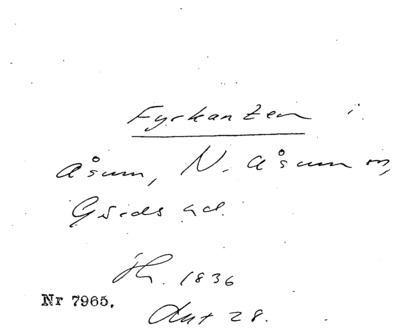 Fyrkanten i
Åsum, N. Åsum sn,
Gärds hd.
1836
Nr 7965.
28.